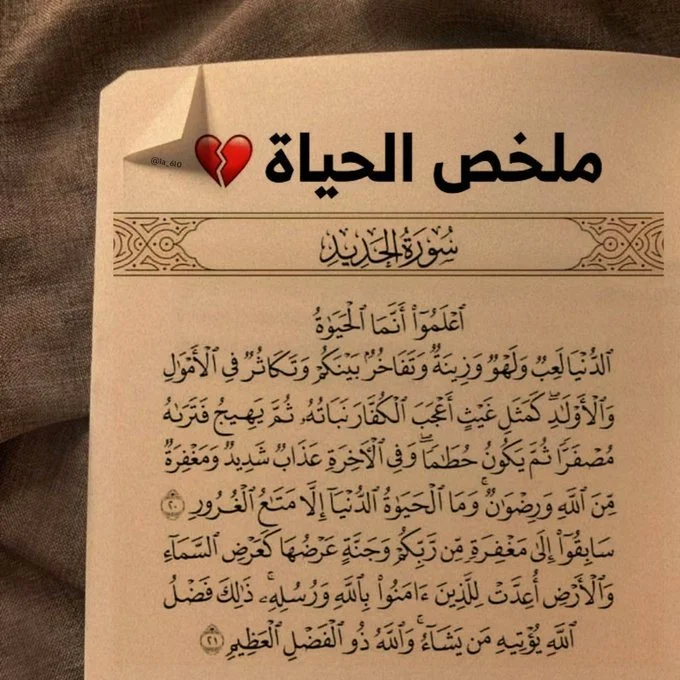 ملخص الحياة 💔
@la_610
سُورَةُ الحَدِيدِ
ٱعۡلَمُوٓاْ أَنَّمَا ٱلۡحَيَوٰةُ
ٱلدُّنۡيَا لَعِبٞ وَلَهۡوٞ وَزِينَةٞ وَتَفَاخُرُۢ بَيۡنَكُمۡ وَتَكَاثُرٞ فِي ٱلۡأَمۡوَٰلِ
وَٱلۡأَوۡلَٰدِۖ كَمَثَلِ غَيۡثٍ أَعۡجَبَ ٱلۡكُفَّارَ نَبَاتُهُۥ ثُمَّ يَهِيجُ فَتَرَىٰهُ
مُصۡفَرّٗا ثُمَّ يَكُونُ حُطَٰمٗاۖ وَفِي ٱلۡأٓخِرَةِ عَذَابٞ شَدِيدٞ وَمَغۡفِرَةٞ
مِّنَ ٱللَّهِ وَرِضۡوَٰنٞۚ وَمَا ٱلۡحَيَوٰةُ ٱلدُّنۡيَآ إِلَّا مَتَٰعُ ٱلۡغُرُورِ ٢٠
سَابِقُوٓاْ إِلَىٰ مَغۡفِرَةٖ مِّن رَّبِّكُمۡ وَجَنَّةٍ عَرۡضُهَا كَعَرۡضِ ٱلسَّمَآءِ
وَٱلۡأَرۡضِ أُعِدَّتۡ لِلَّذِينَ ءَامَنُواْ بِٱللَّهِ وَرُسُلِهِۦۚ ذَٰلِكَ فَضۡلُ
ٱللَّهِ يُؤۡتِيهِ مَن يَشَآءُۚ وَٱللَّهُ ذُو ٱلۡفَضۡلِ ٱلۡعَظِيمِ ٢١